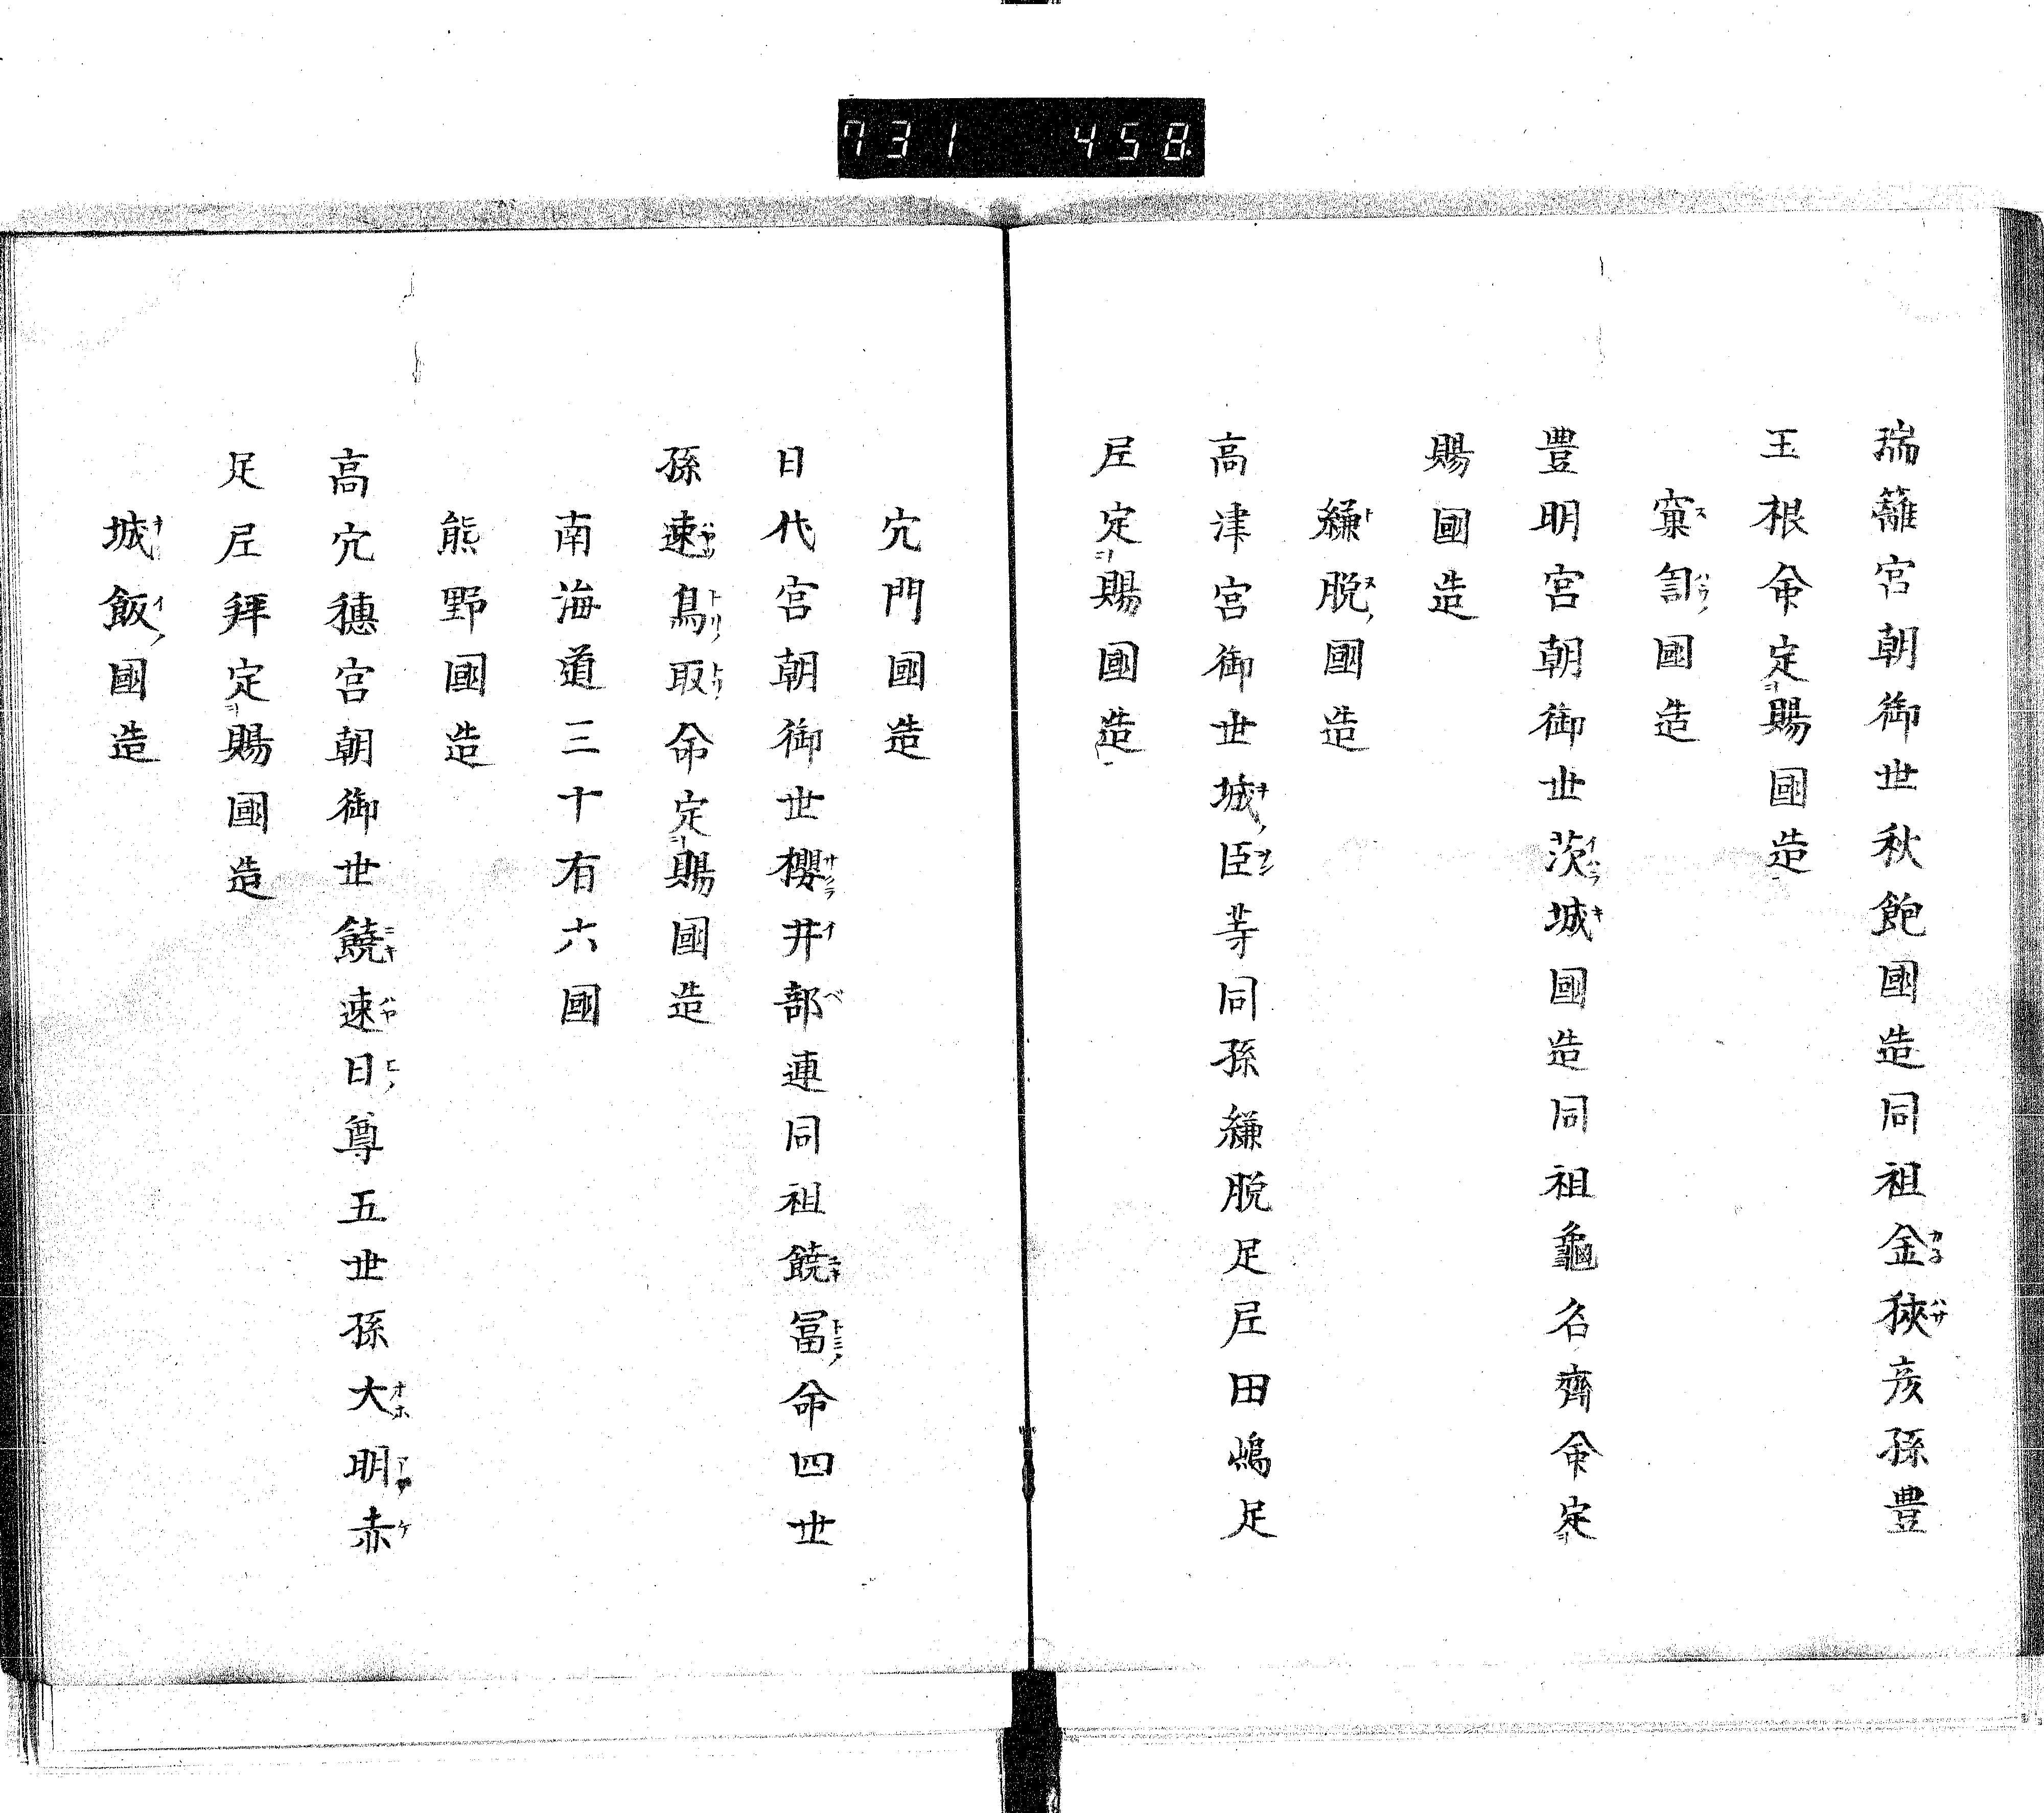 731 458
瑞籬宮朝御世秋飽國造同祖金狹彦孫豊
玉根命定賜國造
窠訇國造
豊明宮朝御世茨城國造同祖龜名齊命定
賜國造
縑脱國造
高津宮御世城臣等同孫縑脱足尼田嶋足
尼定賜國造
穴門國造
日代宮朝御世櫻井部連同祖饒冨命四世
孫速鳥取命定賜國造
南海道三十有六國
熊野國造
高穴穗宮朝御世饒速日尊五世孫大明赤
足尼拜定賜國造
城飯國造